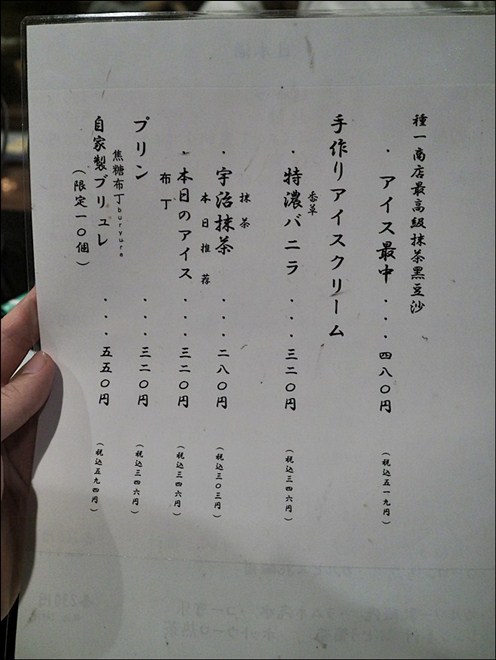 種一商店最高級抹茶黒豆沙
・アイス最中・・・四八〇円（税込五一九円）
手作りアイスクリーム
香草
・特濃バニラ・・・三二〇円（税込三四六円）
抹茶
・宇治抹茶・・・二八〇円（税込三〇三円）
本日推荐
・本日のアイス・・・三二〇円（税込三四六円）
布丁
プリン・・・三二〇円（税込三四六円）
焦糖布丁buryure
自家製ブリュレ・・・五五〇円（税込五九四円）
（限定一〇個）